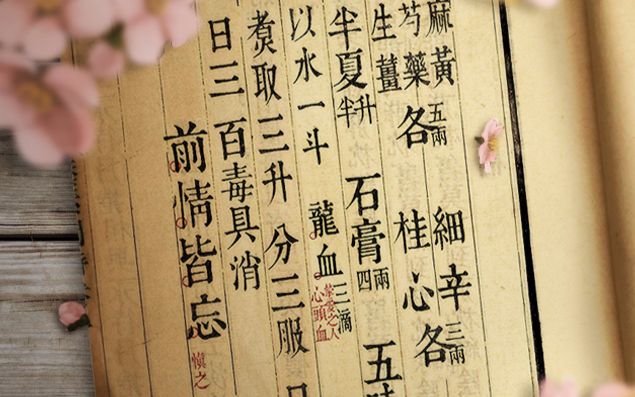 麻黃
芍藥各五兩細辛
生薑桂心各三兩
半夏半升石膏四兩五味
以水一斗龍血三滴摯愛之人心頭血
煮取三升分三服
日三百毒具消
前情皆忘慎之